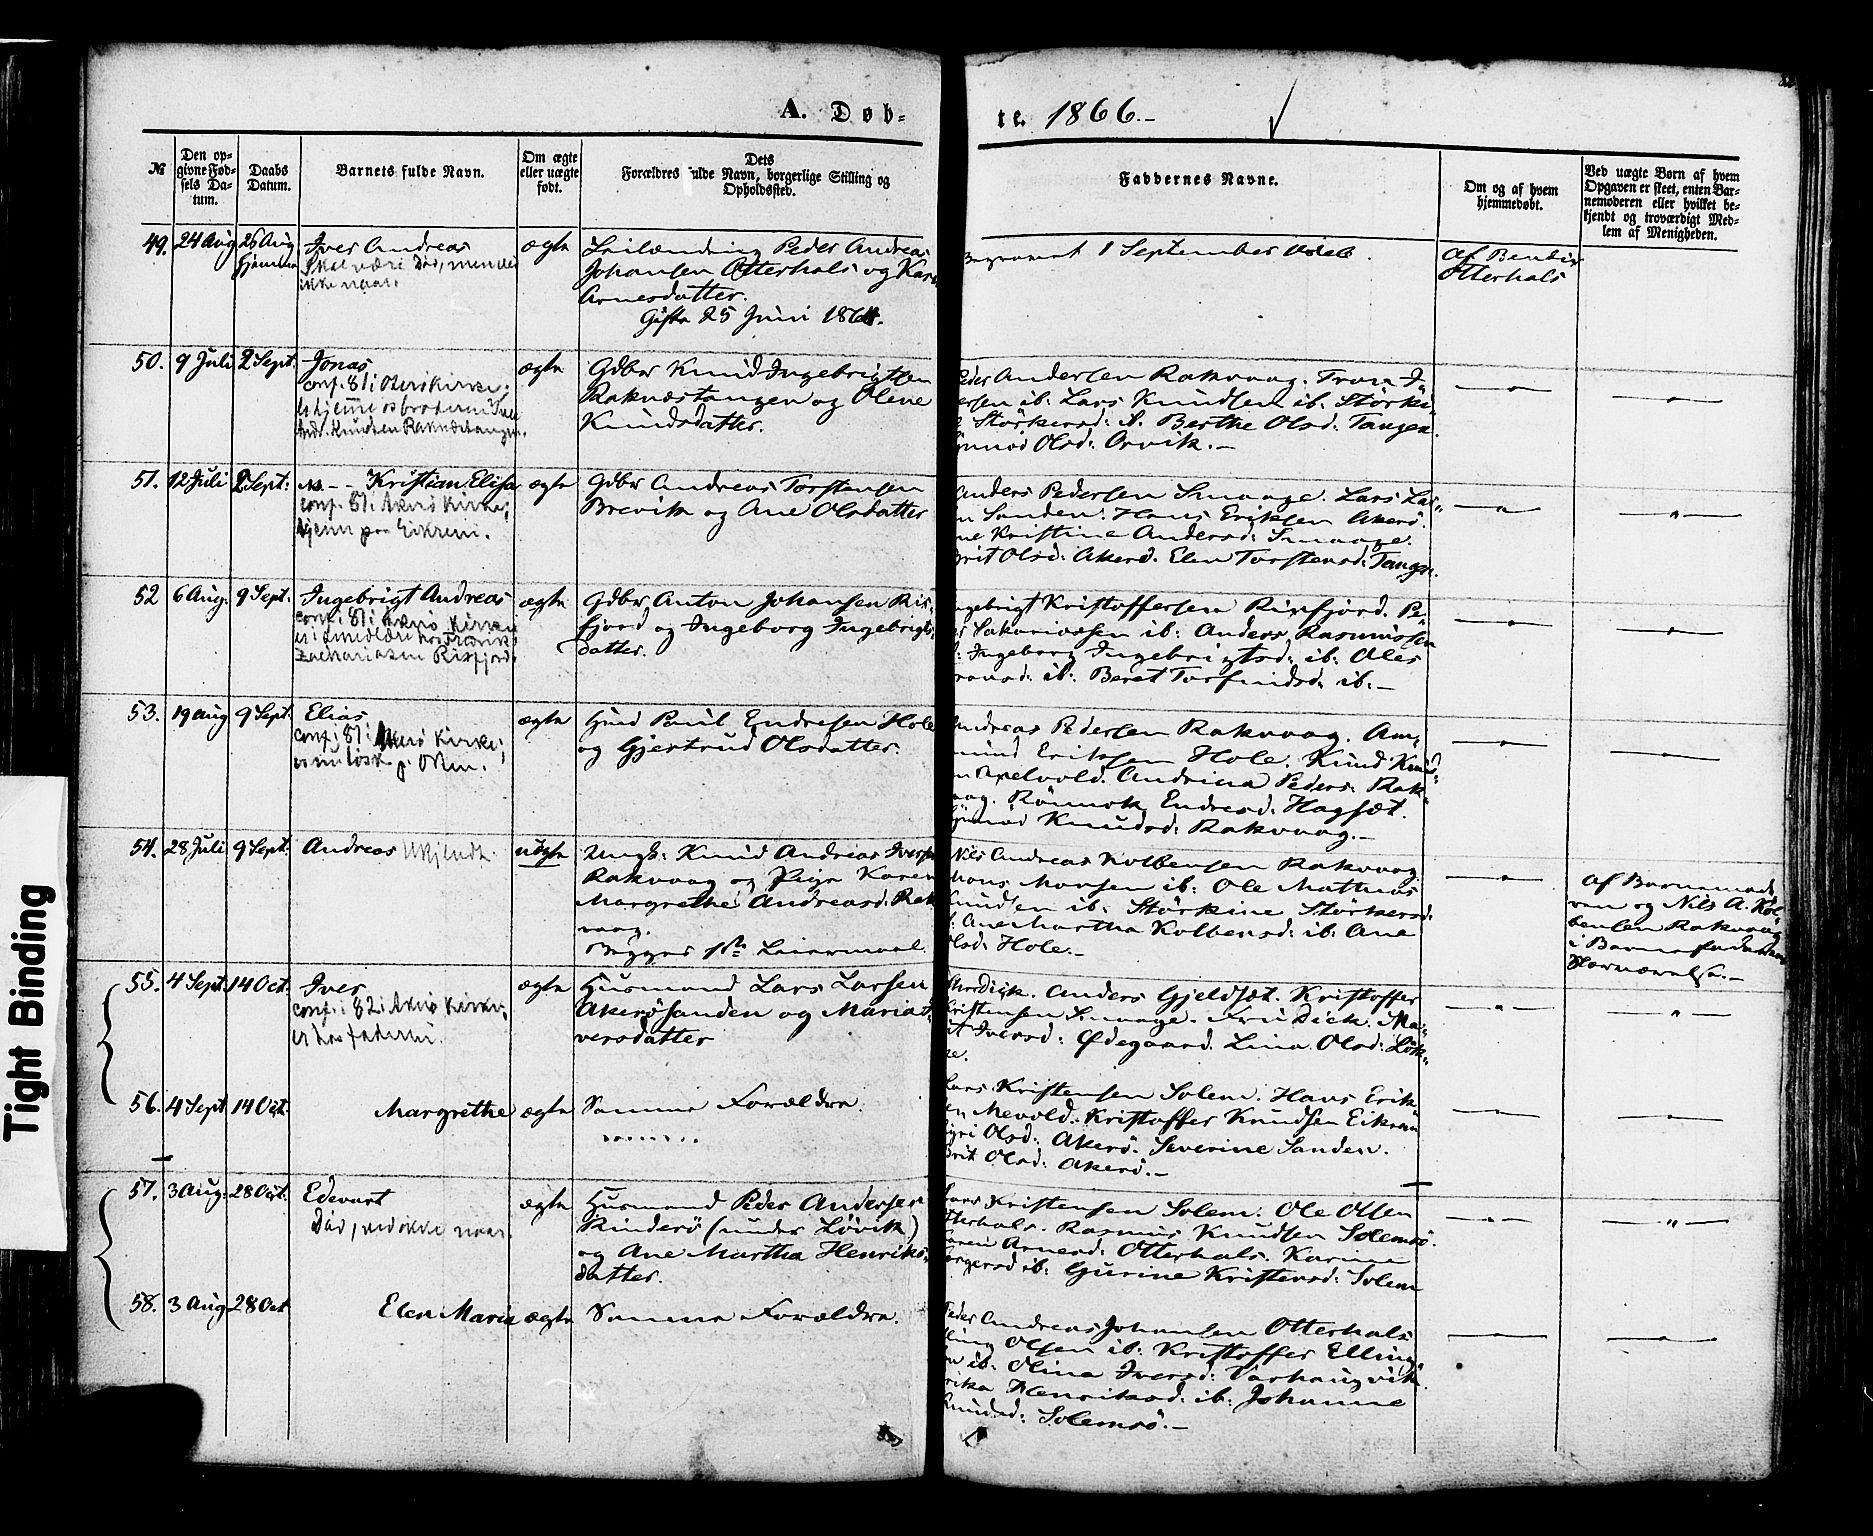 A. Døb-
te. 1866.-
№
Den op-
givne Fød-
sels Da-
tum.
Daabs
Datum.
Barnets fulde Navn.
Om ægte
eller uægte
født.
Dets
Forældres fulde Navn, borgerlige Stilling og
Opholdssted.
Faddernes Navne.
Om og af hvem
hjemmedøbt.
Ved uægte Børn af hvem
Opgaven er skeet, enten Bar-
nemoderen eller hvilket be-
kjendt og troværdigt Med-
lem af Menigheden.
49. 24 Aug 26 Aug Iver Andreas ægte
hjemme
Skal være Död, men ved
ikke naar.
Leilænding Peder Andreas
Johansen Otterhals og Kari
Arnesdatter.
Gifte 25 Juni 1864.
Begravet 1 September
Otterhals
50. 9 Juli 2 Sept. Jonas ægte
conf. 81 i Akerö Kirke.
er hjemme
Knudsen Raknæstangen.
Gdbr Knud Ingebrigtsen
Raknæstangen og Olene
Knudsdatter.
Peder Andersen Rakvaag.
Lars Knudsen ib:
Störkersd: ib. Berthe Olsd: Tangen.
Olsd: Orvik.-
51. 12 Juli 2 Sept: Kristian Elisa ægte
conf. 81 i Akerö Kirke,
hjemme paa Eikrem.
Gdbr Andreas Torstensen
Brevik og Ane Olsdatter
Anders Pedersen Smaage. Lars Lar-
Sanden. Hans Eriksen Akerö.
Kristine Andersd: Smaage.
Brit Olsd: Akerö. Elen Torstensd: Tangen.
52 6 Aug. 9 Sept: Ingebrigt Andreas ægte
conf. 81 i Akerö Kirke
Zachariasen Risfjord.
Gdbr Anton Johansen Ris-
fjord og Ingeborg Ingebrigts-
datter.
Ingebrigt Kristoffersen Risfjord. Pe-
Sakariassen ib: Anders Rasmussen
Ingeborg Ingebrigtsd: ib:
ib: Beret Torfindsd: ib.-
53. 19 Aug 9 Sept. Elias ægte
conf. 81 i Akerö Kirke,
Husd Paul Endresen Hole
og Gjertrud Olsdatter.
Andreas Pedersen Rakvaag. Am-
mund Eriksen Hole. Knud Knud-
Andrina Peders: Rak-
vaag. Endresd: Hagsæt.
Knudsd: Rakvaag.-
54. 28 Juli 9 Sept: Andreas uægte
Ungk: Knud Andreas Iversen
Rakvaag og Pige Karen
Margrethe Andreasd: Rak
vaag.
Begges 1ste Leiermaal
Nils Andreas Kolbensen Rakvaag
Monsen ib: Ole Mathias
Knudsen ib. Störkine Störkersd:
Ane Martha Kolbensd: ib: Ane
Olsd: Hole.-
af Barnemode-
ren og Nils A. Kol-
bensen Rakvaag
i Barnefaderens
Nærværelse.-
55. 4 Sept: 14 Oct: Iver ægte
conf: i 82 i Akerö Kirke,
er hos faderen.
Husmand Lars Larsen
Akerösanden og Maria I-
versdatter
Dick. Anders Gjeldsæt. Kristoffer
Kristensen Smaage. Fru Dick. Ma-
rit Iversd: Ødegaard. Lina Olsd: Løk-
ke.
56. 4 Sept 14 Oct: Margrethe ægte Samme Forældre.
Lars Kristensen Solem. Hans Erik-
sen Mevold. Kristoffer Knudsen Eikrem
Olsd: Akerö. Severine Sanden.
Brit Olsd: Akerö.-
57. 3 Aug: 28 Oct: Edevart ægte
Död, ved ikke naar.
Husmand Peder Andersen
Rinderö (under Lövik)
og Ane Martha Henriks-
datter.
Lars Kristensen Solem. Ole Olsen
Otterhals. Rasmus Knudsen Solemsö.
Karen Arnesd: Otterhals. Karine
ib: Gurine Kristensd: Solem
58. 3 Aug 28 Oct Elen Maria ægte Samme Forældre.
Peder Andreas Johansen Otterhals
Elling Olsen ib: Kristoffer Elling-
sen ib: Olina Iversd: Varhaugvik.
Henriksd: ib: Johanne
Knudsd: Solemsö.-
Tight Binding